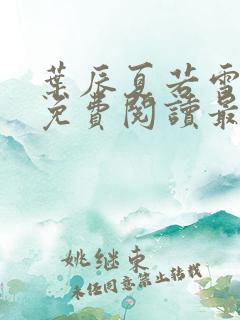 葉辰夏若雪
免費閱讀最
姚继东
未经同意禁止转载